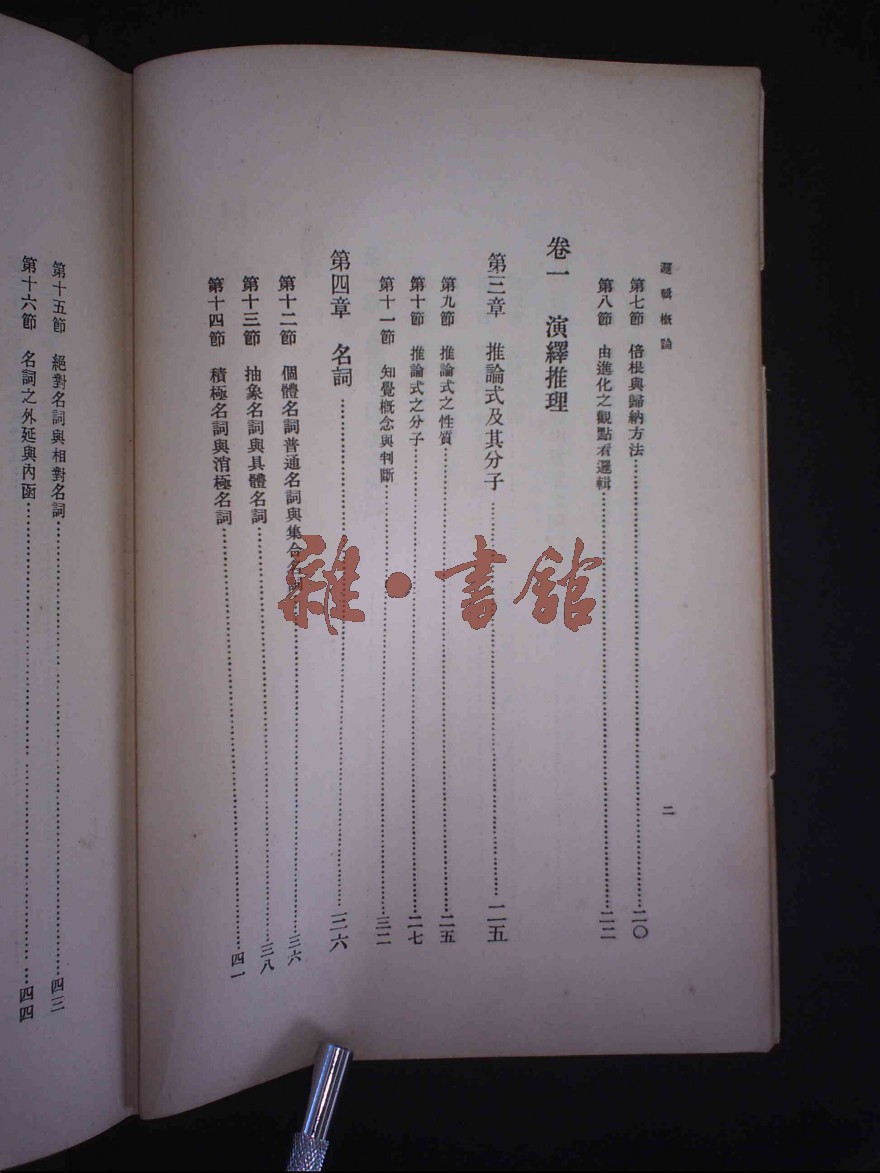 邏輯概論
第七節　倍根與歸納方法……二〇
第八節　由進化之觀點看邏輯……二二
卷一　演繹推理
第三章　推論式及其分子……二五
第九節　推論式之性質……二五
第十節　推論式之分子……二七
第十一節　知覺概念與判斷……三二
第四章　名詞……三六
第十二節　個體名詞普通名詞與集合名詞……三六
第十三節　抽象名詞與具體名詞……三八
第十四節　積極名詞與消極名詞……四一
二
第十五節　絕對名詞與相對名詞……四三
第十六節　名詞之外延與內函……四四
雜·書館